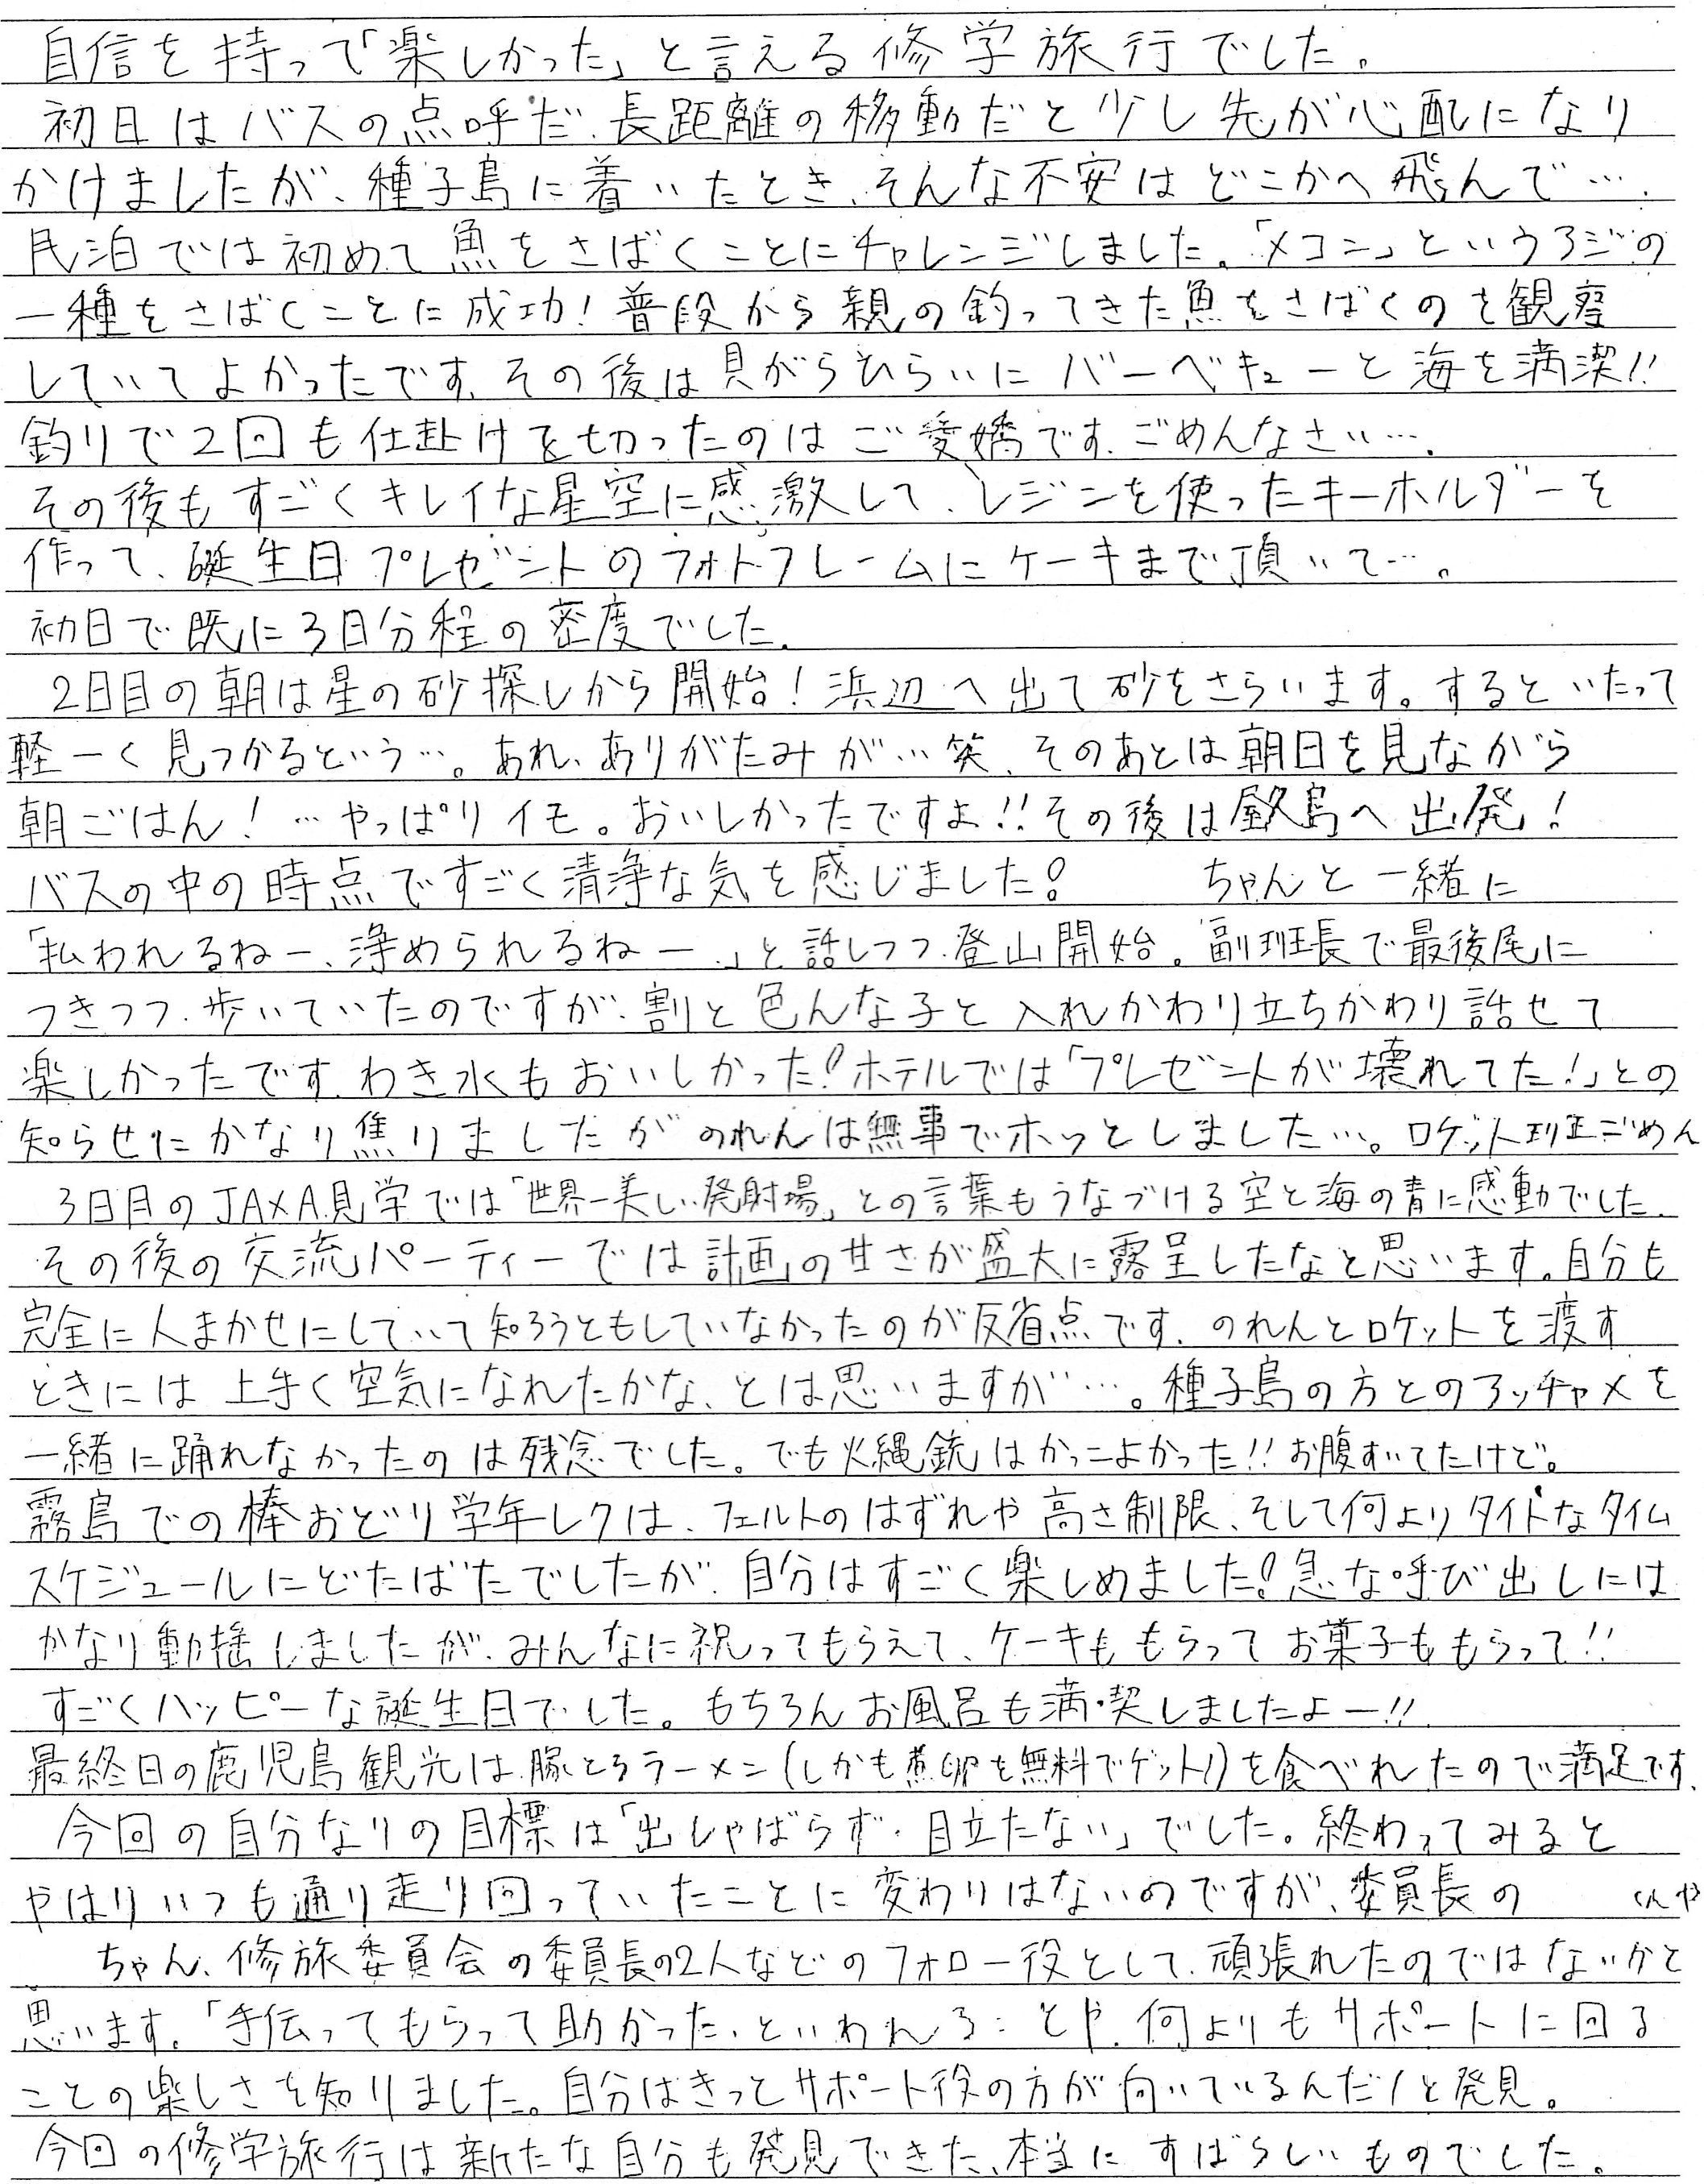 自信を持って「楽しかった」と言える修学旅行でした。
初日はバスの点呼だ、長距離の移動だと少し先が心配になり
かけましたが、種子島に着いたとき、そんな不安はどこかへ飛んで…。
民泊では初めて魚をさばくことにチャレンジしました。「メコン」というアジの
一種をさばくことに成功!普段から親の釣ってきた魚をさばくのを観察
していてよかったです。その後は貝がらひらいにバーベキューと海を満潔!!
釣りで2回も仕掛けを切ったのはご愛嬌です。ごめんなさい…。
その後もすごくキレイな星空に感激して、レジンを使ったキーホルダーを
作って、誕生日プレゼントのフォトフレームにケーキまで頂いて…。
初日で既に3日分程の密度でした。
2日目の朝は星の砂探しから開始!浜辺へ出て砂をさらいます。するといたって
軽ーく見つかるという…。あれ、ありがたみが…笑、そのあとは朝日を見ながら
朝ごはん!…やっぱりイモ。おいしかったですよ!!その後は屋久島へ出発!
バスの中の時点ですごく清浄な気を感じました! ちゃんと一緒に
「払われるねー、浄められるねー。」と話しつつ、登山開始。副班長で最後尾に
つきつつ、歩いていたのですが、割と色んな子と入れかわり立ちかわり話せて
楽しかったです。わき水もおいしかった!ホテルでは「プレゼントが壊れてた!」との
知らせにかなり焦りましたがのれんは無事でホッとしました…。ロケット班ごめん
3日目のJAXA見学では「世界一美しい発射場」との言葉もうなづける空と海の青に感動でした。
その後の交流パーティーでは計画の甘さが盛大に露呈したなと思います。自分も
完全に人まかせにしていて知ろうともしていなかったのが反省点です。のれんとロケットを渡す
ときには上手く空気になれたかな、とは思いますが…。種子島の方とのアッチャメを
一緒に踊れなかったのは残念でした。でも火縄銃はかっこよかった!!お腹すいてたけど。
霧島での棒おどり学年レクは、フェルトのはずれや高さ制限、そして何よりタイトなタイム
スケジュールにどたばたでしたが、自分はすごく楽しめました!急な呼び出しには
かなり動揺しましたが、みんなに祝ってもらえて、ケーキももらってお菓子ももらって!!
すごくハッピーな誕生日でした。もちろんお風呂も満喫しましたよー!!
最終日の鹿児島観光は豚とろラーメン(しかも煮卵を無料でゲット!)を食べれたので満足です。
今回の自分なりの目標は「出しゃばらず、目立たない」でした。終わってみると
やはりいつも通り走り回っていたことに変わりはないのですが、委員長の くんや
ちゃん、修旅委員会の委員長の2人などのフォロー役として、頑張れたのではないかと
思います。「手伝ってもらって助かった」といわれることや、何よりもサポートに回る
ことの楽しさを知りました。自分はきっとサポート役の方が向いているんだ!と発見。
今回の修学旅行は新たな自分も発見できた、本当にすばらしいものでした。